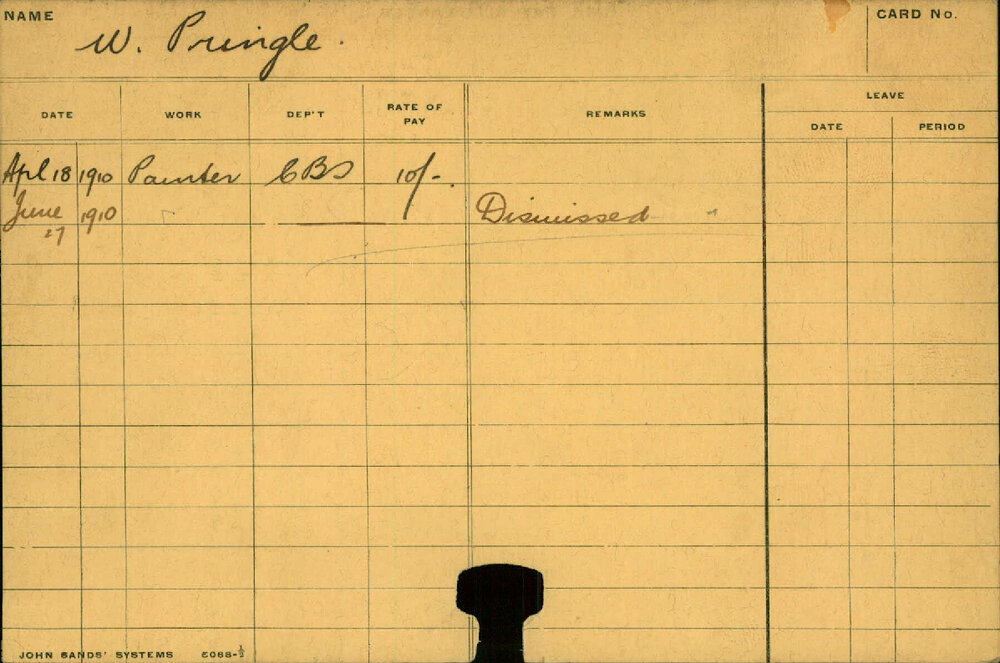 NAME W. Pringle. CARD No.
LEAVE
DATE WORK DEP'T RATE OF PAY REMARKS DATE PERIOD
Apl 18 1910 Painter CBS 10/-.
June 27 1910 Dismissed
JOHN SANDS' SYSTEMS 5088-½